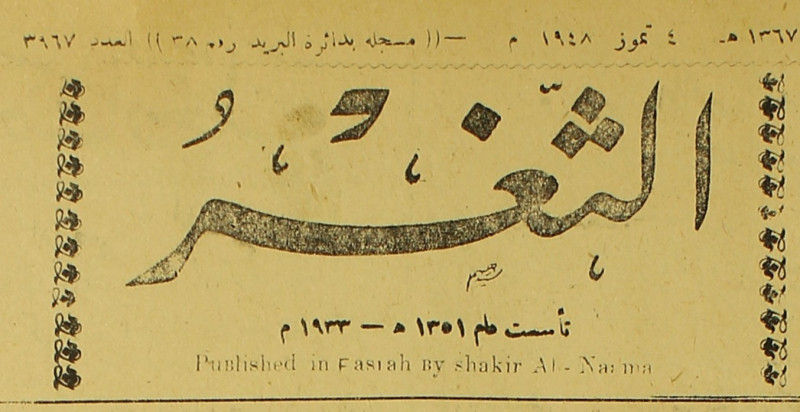 ١٣٦٧ هـ ٤ تموز ١٩٤٨ م —(( مسجله بدائرة البريد رقم ٣٨ )) العدد ٣٩٦٧
الثَّغْرُ
تأسست عام ١٣٥١ هـ — ١٩٣٣ م
Published in Basrah By shakir Al - Na:ma